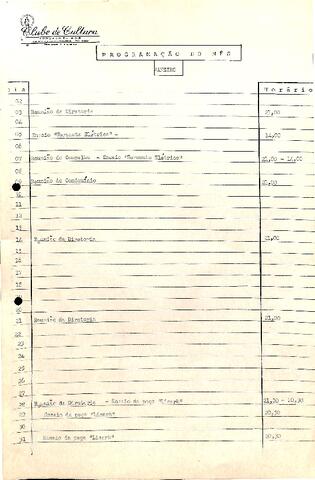 Clube de Cultura
PROGRAMAÇÃO DO MÊS
JANEIRO
Dia Horário
02
03 Reunião de Diretoria 21,00
04
05 Ensaio - 14,00
06
07 Reunião do Conselho - Ensaio 21,00 - 14,00
08
09 Reunião do Condomínio 21,00
10
11
12
13
14 Reunião da Diretoria 21,00
15
16
17
18
19
20
21 Reunião da Diretoria 21,00
22
23
24
25
26
27
28 Reunião da Diretoria - Ensaio da peça 21,30 - 20,30
29 Ensaio da peça 20,30
30
31 Ensaio da peça 20,30